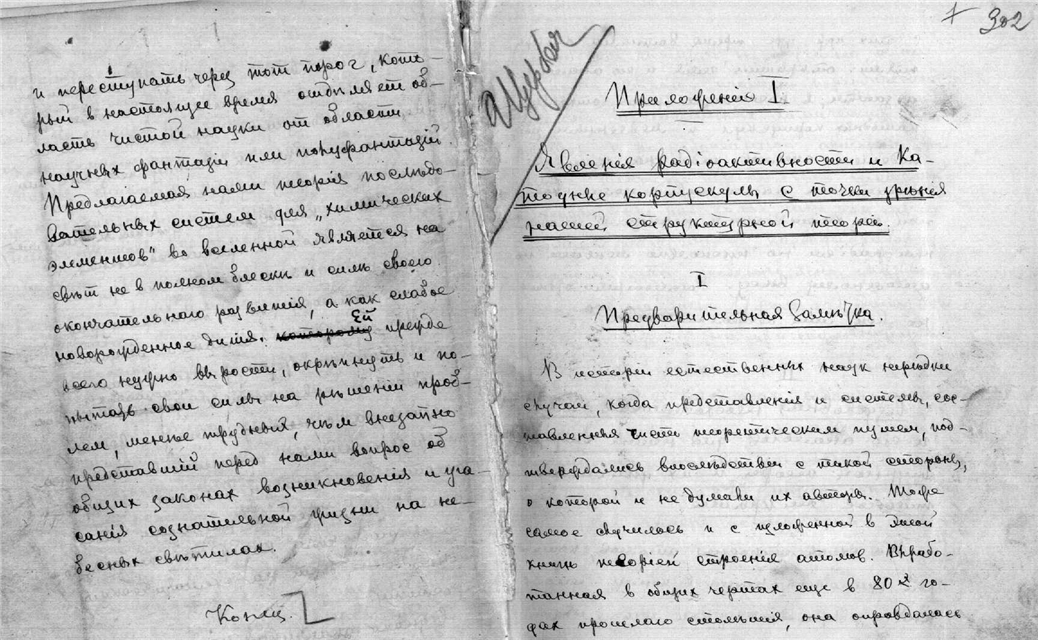 и переступать через тотъ порог, кото-
рый в настоящее время отделяет об-
ласть чистой науки от области
научных фантазий или полуфантазий.
Предлагаемая нами теорія последо-
вательных систем для „химических
элементов“ во вселенной является на
свѣт не в полном блескѣ и силѣ своего
окончательнаго развитія, а как слабое
новорожденное дитя. Ей прежде
всего нужно вырости, окрѣпнуть и по-
пытать свои силы на рѣшеніи проб-
лем, менѣе трудных, чѣм внезапно
представшій перед нами вопрос об
общих законах возникновенія и уга-
санія сознательной жизни на не-
бесных свѣтилах.
Конец.
302
Приложенія I
Явленія радіоактивности и ка-
тодные корпускулы с точки зрѣнія
нашей структурной теоріи.
I
Предварительная замѣтка.
В исторіи естественных наук нерѣдки
случаи, когда представленія и системы, сос-
тавленныя чисто теоретическим путем, под-
тверждались впослѣдствіи с такой стороны,
о которой и не думали их авторы. Тоже
самое случилось и с изложенной в этой
книгѣ теоріей строенія атомов. Вырабо-
танная в общих чертах еще в 80 х го-
дах прошлаго столѣтія, она оправдалась